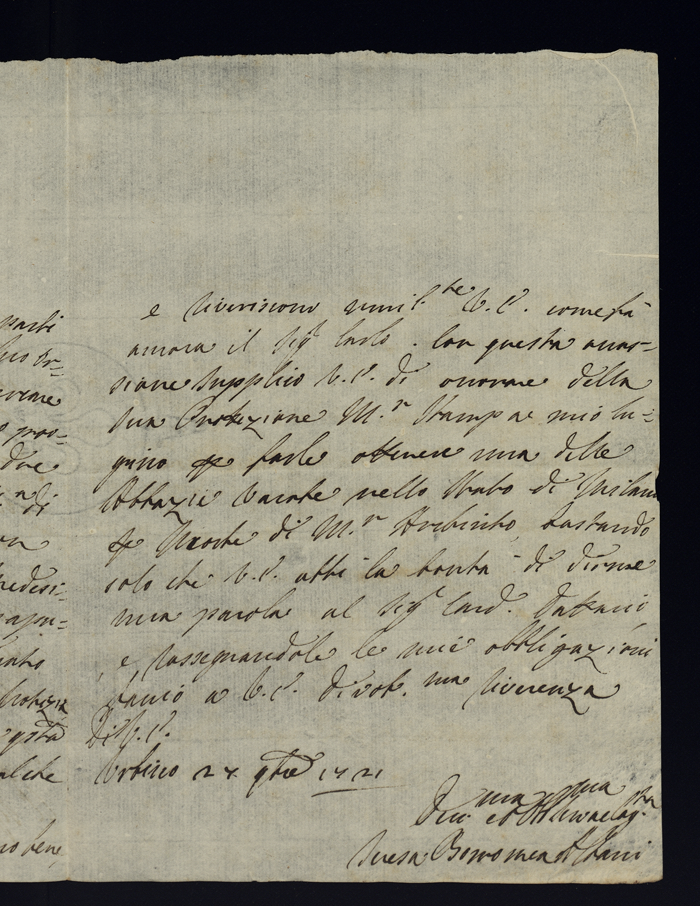 e riveriscono umil.te V. E. come fà
ancora il Sig.r Carlo. Con questa occa=
sione supplico V. E. di onorare della
sua Protezione M.r Stampa mio cu=
gino p farle ottenere una delle
Abbazie vacate nello Stato di Milano
p Morte di M.r Archinto, bastando
solo che V. E. abbi la bontà di dirne
una parola al Sig.r Card. Datario,
e rassegnandole le mie obbligazioni
faccio a V. E. divot.ma riverenza
Di V. E.
Urbino 24 9bre 1721
Dev.ma et Obb.ma
Teresa Borromea Albani
parti
due
a di
medesi=
ogsta
alche
bene